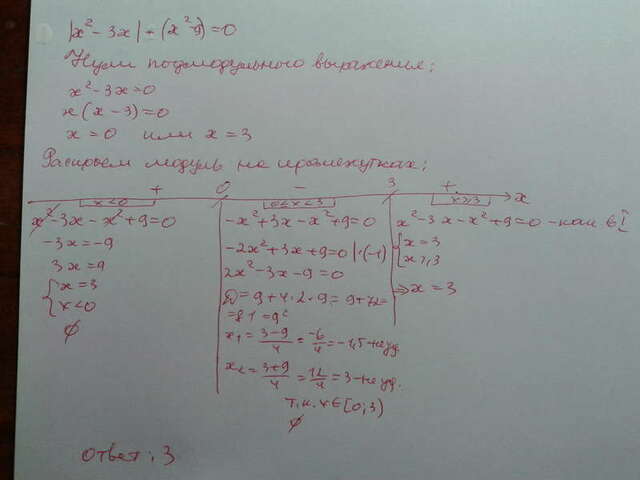 |x² - 3x| - (x² - 9) = 0
Нули подмодульного выражения:
x² - 3x = 0
x(x - 3) = 0
x = 0 или x = 3
Раскроем модуль на промежутках:
+ 0 - 3 + x
x<0 0≤x<3 x≥3
x² - 3x - x² + 9 = 0
-3x = -9
3x = 9
{ x = 3
x < 0
∅
-x² + 3x - x² + 9 = 0
-2x² + 3x + 9 = 0 |·(-1)
2x² - 3x - 9 = 0
D = 9 + 4·2·9 = 9 + 72 =
= 81 = 9²
x₁ = (3-9)/4 = -6/4 = -1,5 - не уд.
x₂ = (3+9)/4 = 12/4 = 3 - не уд.
т.к. x ∈ [0; 3)
∅
x² - 3x - x² + 9 = 0 - как в I
{ x = 3
x ≥ 3
=> x = 3
Ответ: 3